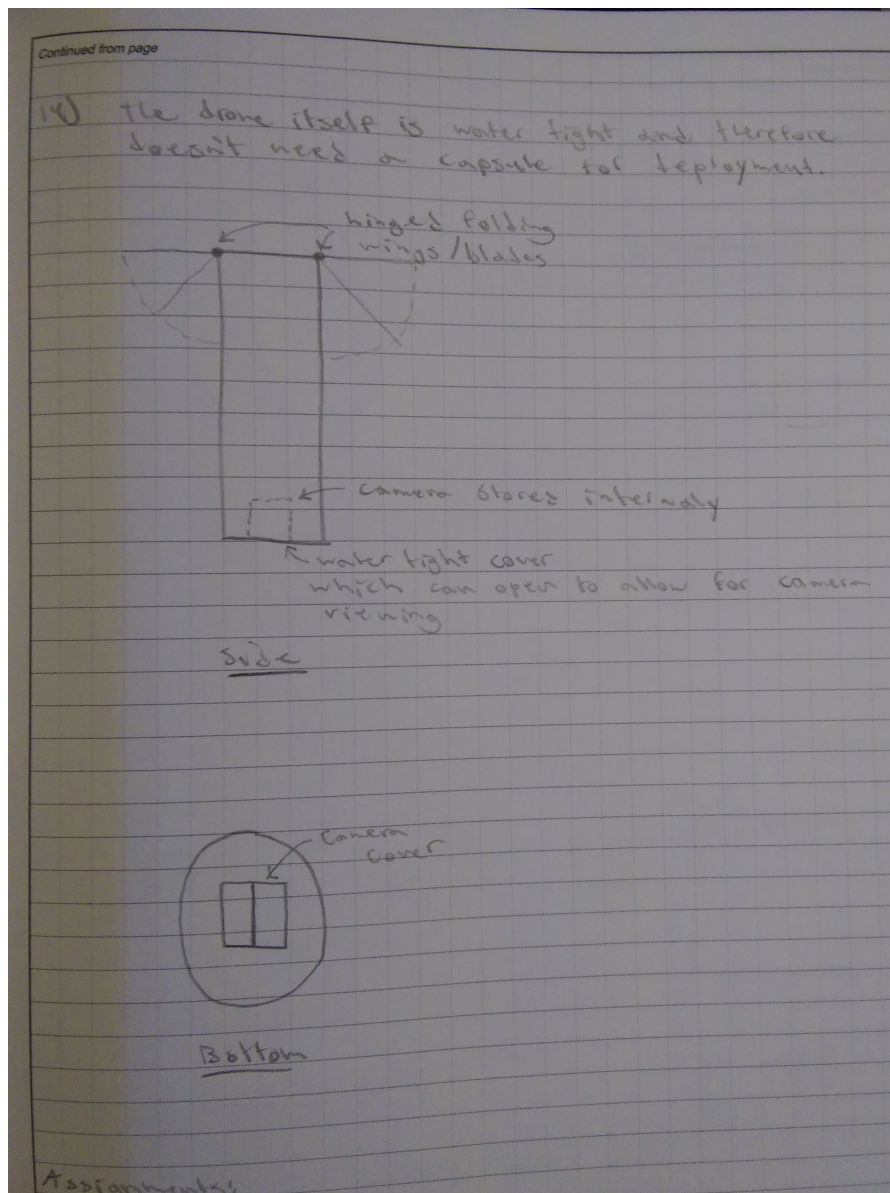 Continued from page
14) The drone itself is water tight and therefore
doesn't need a capsule for deployment.
hinged folding
wings/blades
camera stored internaly
water tight cover
which can open to allow for camera
viewing
Side
camera
cover
Bottom
Assignments: